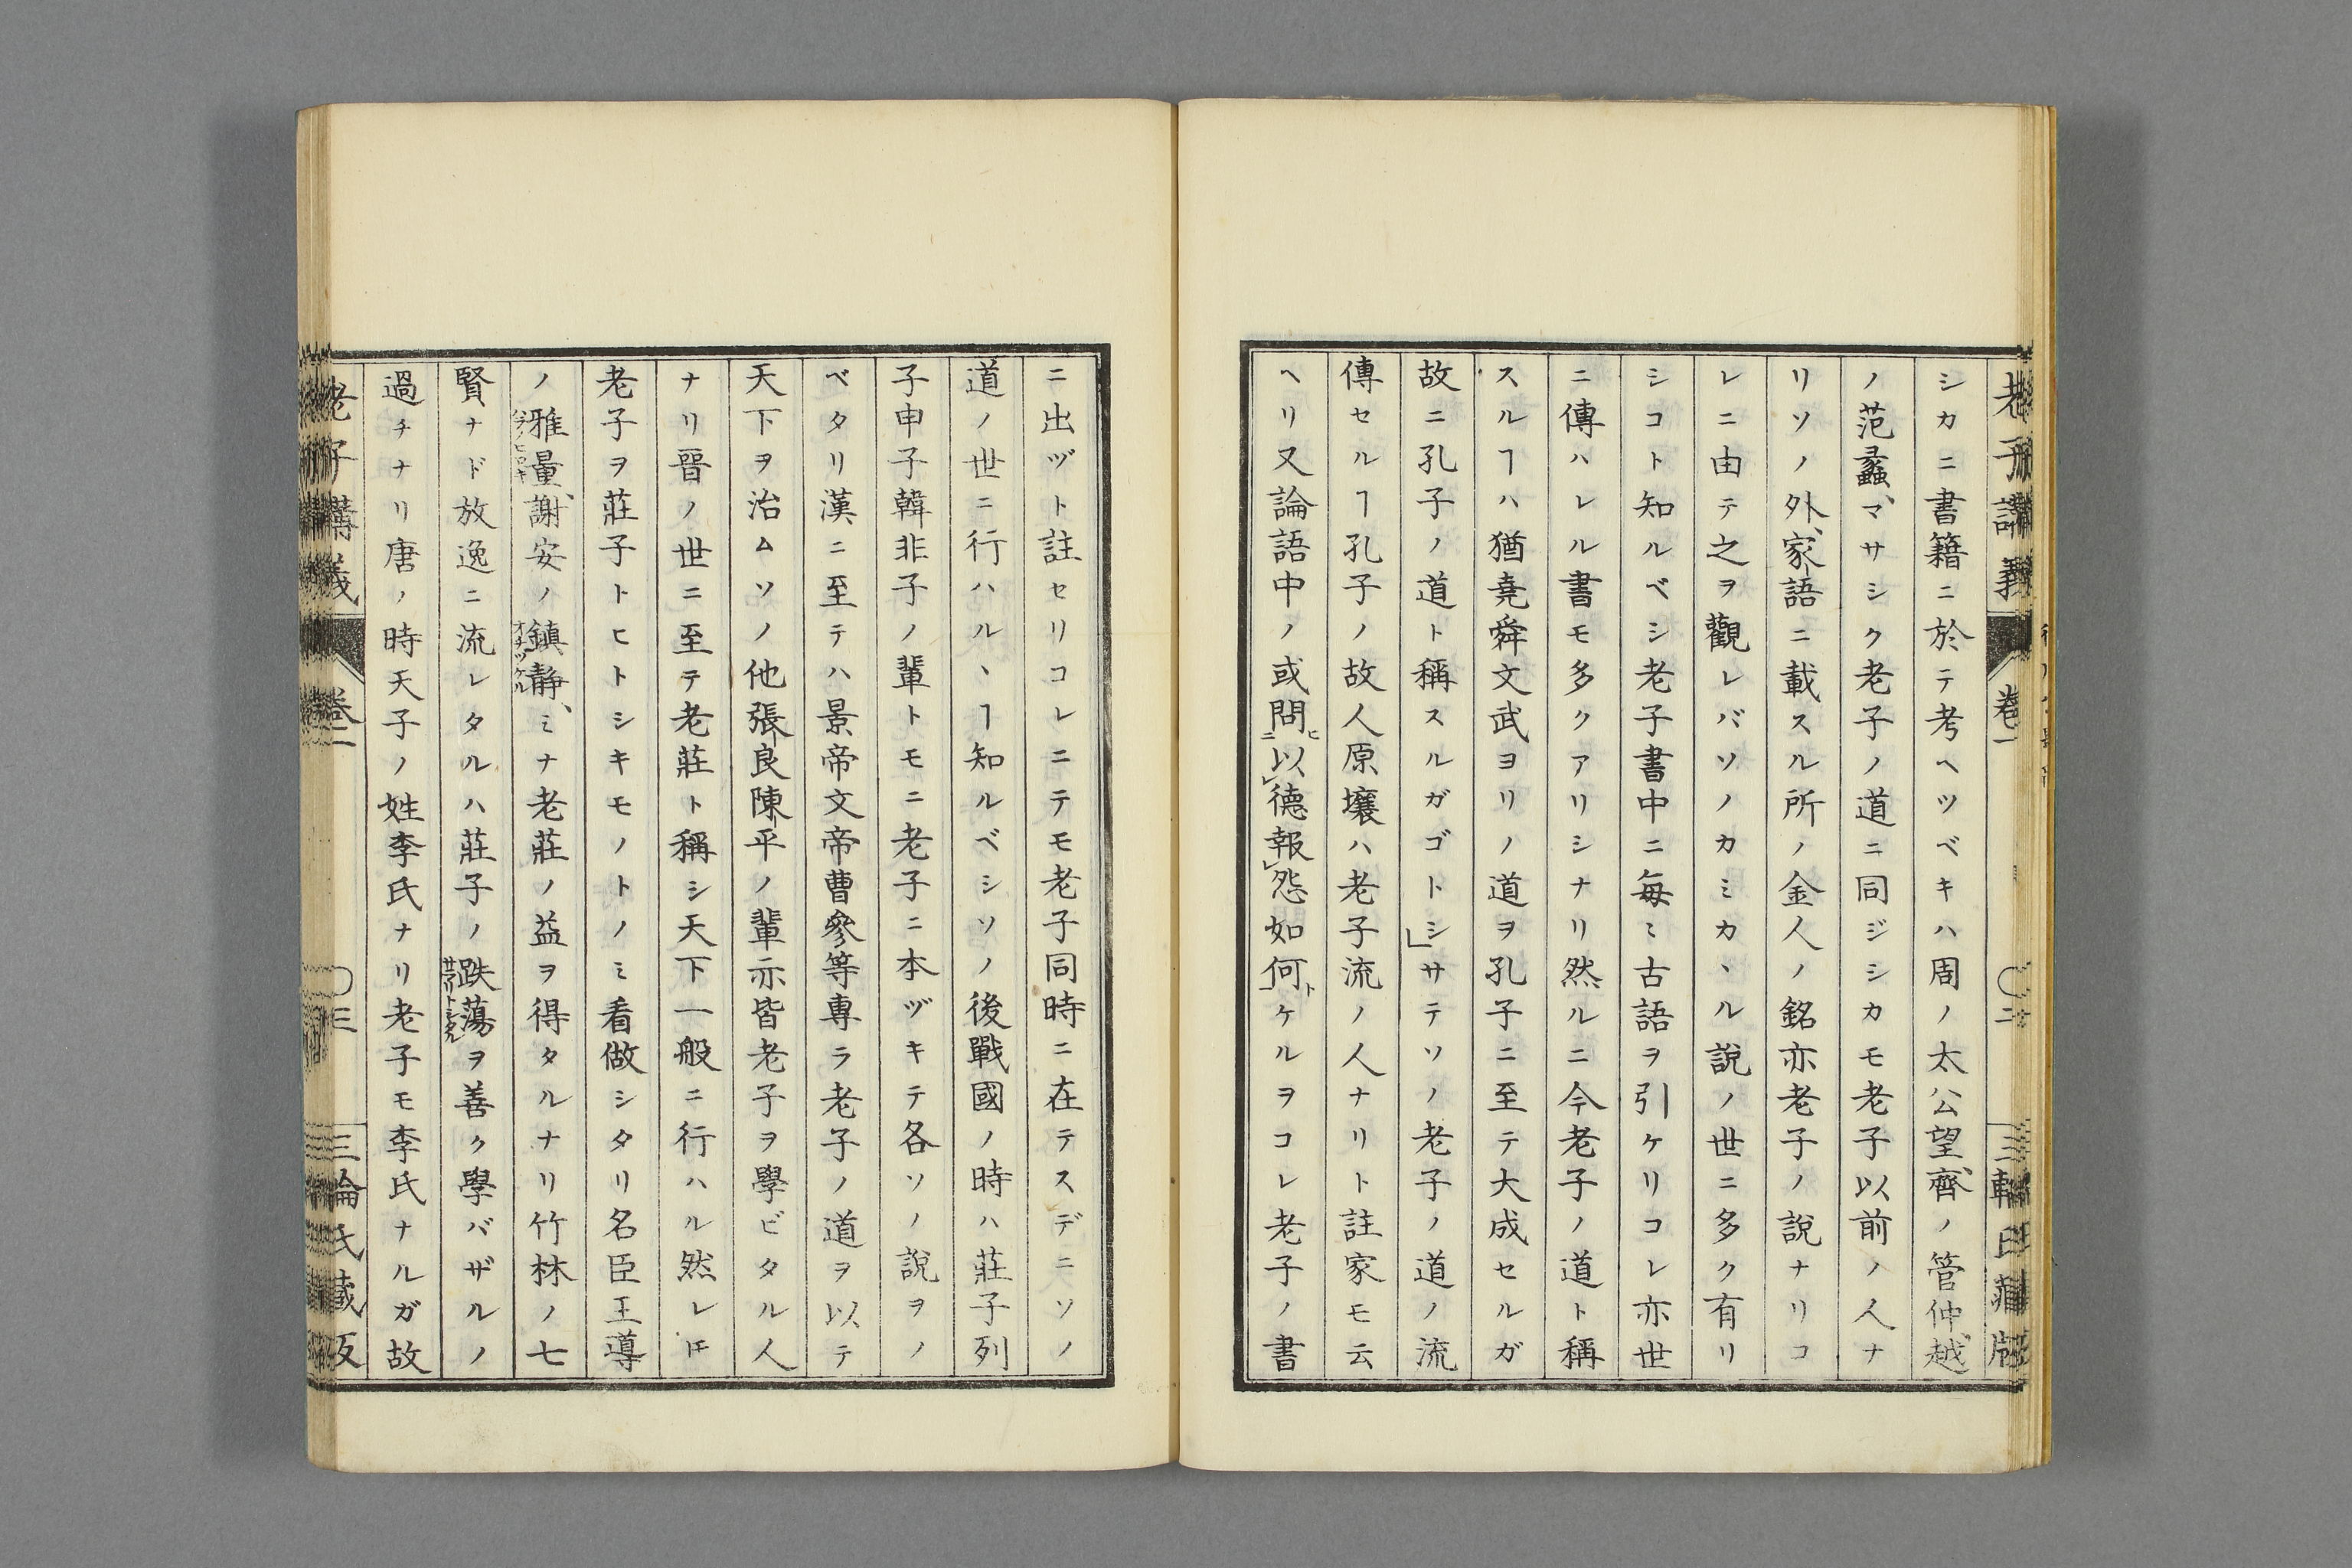 老子講義
卷一
〇二
三輪氏藏版
シカニ書籍ニ於テ考ヘツベキハ周ノ太公望、齊ノ管仲、越
ノ范蠡、マサシク老子ノ道ニ同ジシカモ老子以前ノ人ナ
リソノ外、家語ニ載スル所ノ金人ノ銘亦老子ノ說ナリコ
レニ由テ之ヲ觀レバソノカミカヽル說ノ世ニ多ク有リ
シコト知ルベシ老子書中ニ每ミ古語ヲ引ケリコレ亦世
ニ傳ハレル書モ多クアリシナリ然ルニ今老子ノ道ト稱
スルヿハ猶堯舜文武ヨリノ道ヲ孔子ニ至テ大成セルガ
故ニ孔子ノ道ト稱スルガゴトシ」サテソノ老子ノ道ノ流
傳セルヿ孔子ノ故人原壤ハ老子流ノ人ナリト註家モ云
ヘリ又論語中ノ或問ヒニ以レ德報レ怨如何トケルヲコレ老子ノ書
ニ出ヅト註セリコレニテモ老子同時ニ在テスデニソノ
道ノ世ニ行ハルヽヿ知ルベシソノ後戰國ノ時ハ莊子列
子申子韓非子ノ輩トモニ老子ニ本ヅキテ各ソノ說ヲノ
ベタリ漢ニ至テハ景帝文帝曹參等專ラ老子ノ道ヲ以テ
天下ヲ治ムソノ他張良陳平ノ輩亦皆老子ヲ學ビタル人
ナリ晉ノ世ニ至テ老莊ト稱シ天下一般ニ行ハル然レ𪜈
老子ヲ莊子トヒトシキモノトノミ看做シタリ名臣王導
ノ雅量、謝安ノ鎮靜、ミナ老莊ノ益ヲ得タルナリ竹林ノ七
賢ナド放逸ニ流レタルハ莊子ノ跌蕩ヲ善ク學バザルノ
過チナリ唐ノ時天子ノ姓李氏ナリ老子モ李氏ナルガ故
老子講義
卷一
〇三
三輪氏藏版